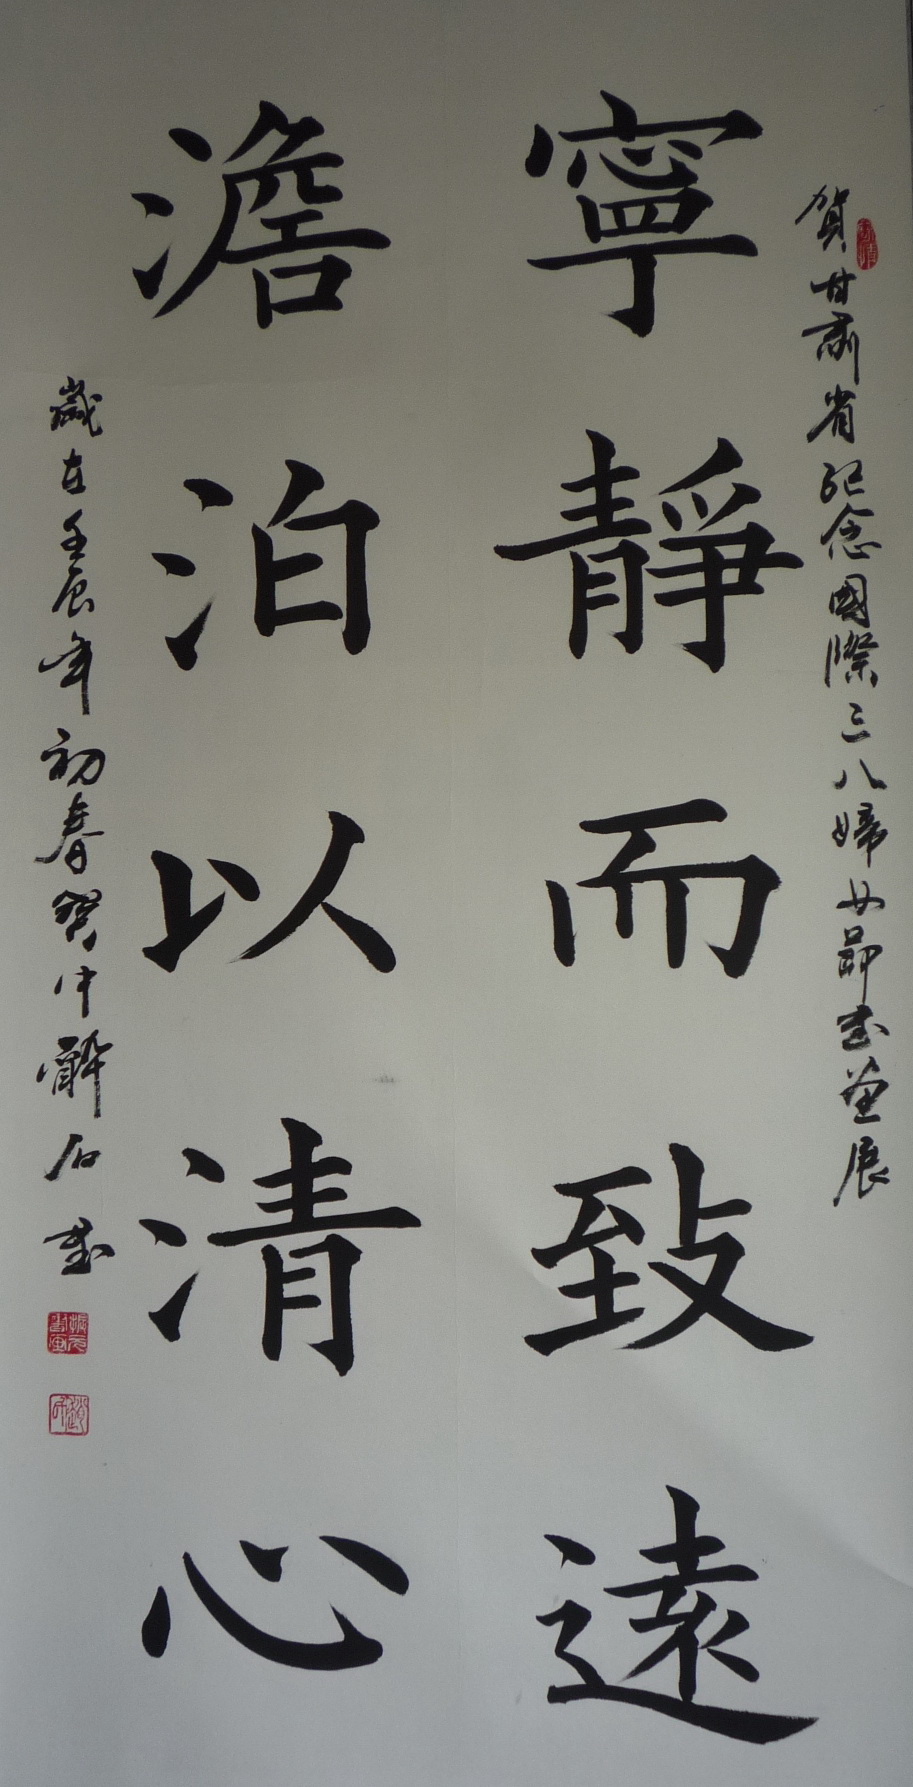 賀甘肅省紀念國際三八婦女節書畫展
寧靜而致遠
澹泊以清心
歲在壬辰年初春
石書